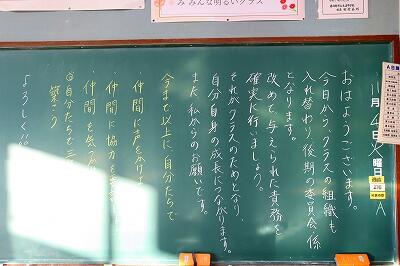 みんな明るいクラス
11月4日火曜日
おはようございます。
今日から、クラスの組織も
入れ替わり、後期の委員会・係
となります。
改めて与えられた責務を
確実に行いましょう。
それがクラスのためとなり、
自分自身の成長につながります。
また、私からのお願いです。
今まで以上に、自分たちで
仲間に声かけ
仲間に協力を
仲間を気
築こう
◎自分たちで
よろしく!!